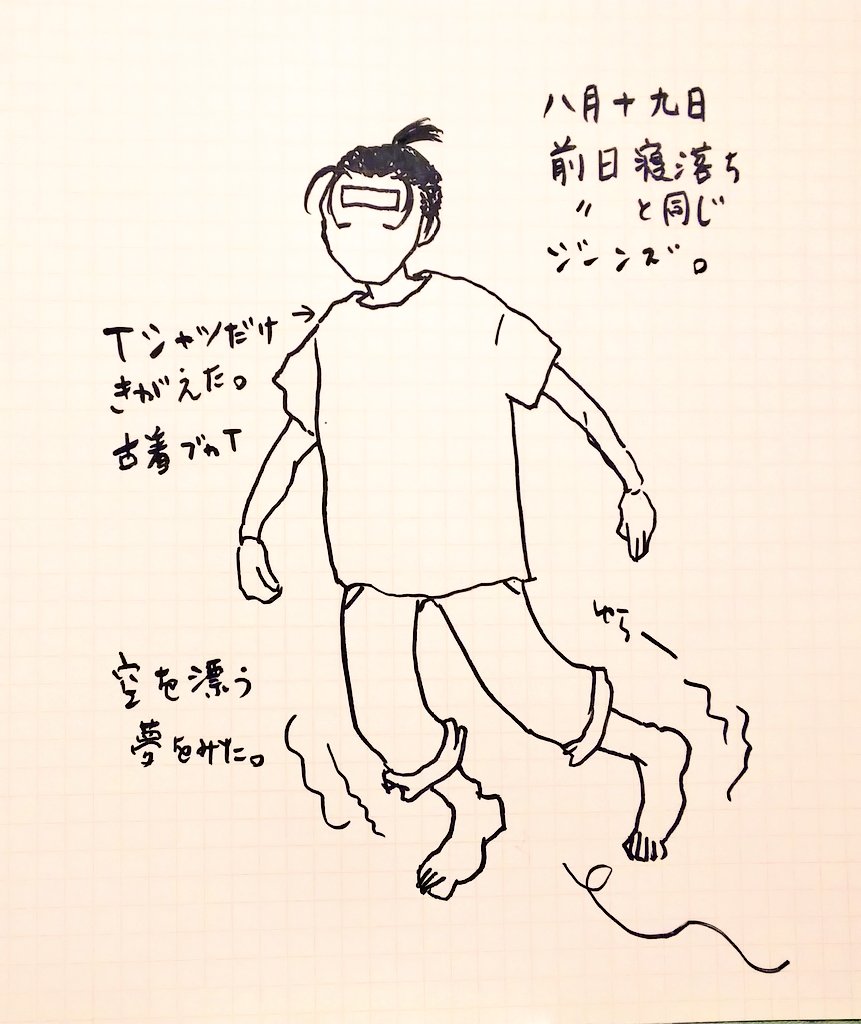 八月十九日
前日寝落ち
〃 と同じ
ジーンズ。
Tシャツだけ
きがえた。
古着ブカT
ゆら
空を漂う
夢をみた。